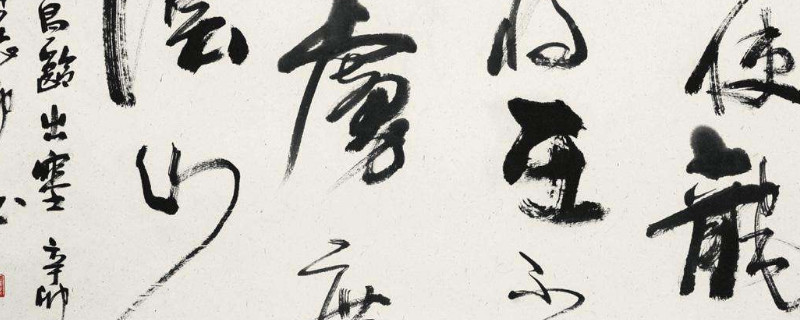 使龍
将在不
虜度
陰山
昌齡出塞 辛卯